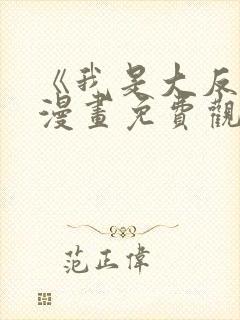 《我是大反
漫畫免費觀
范正偉